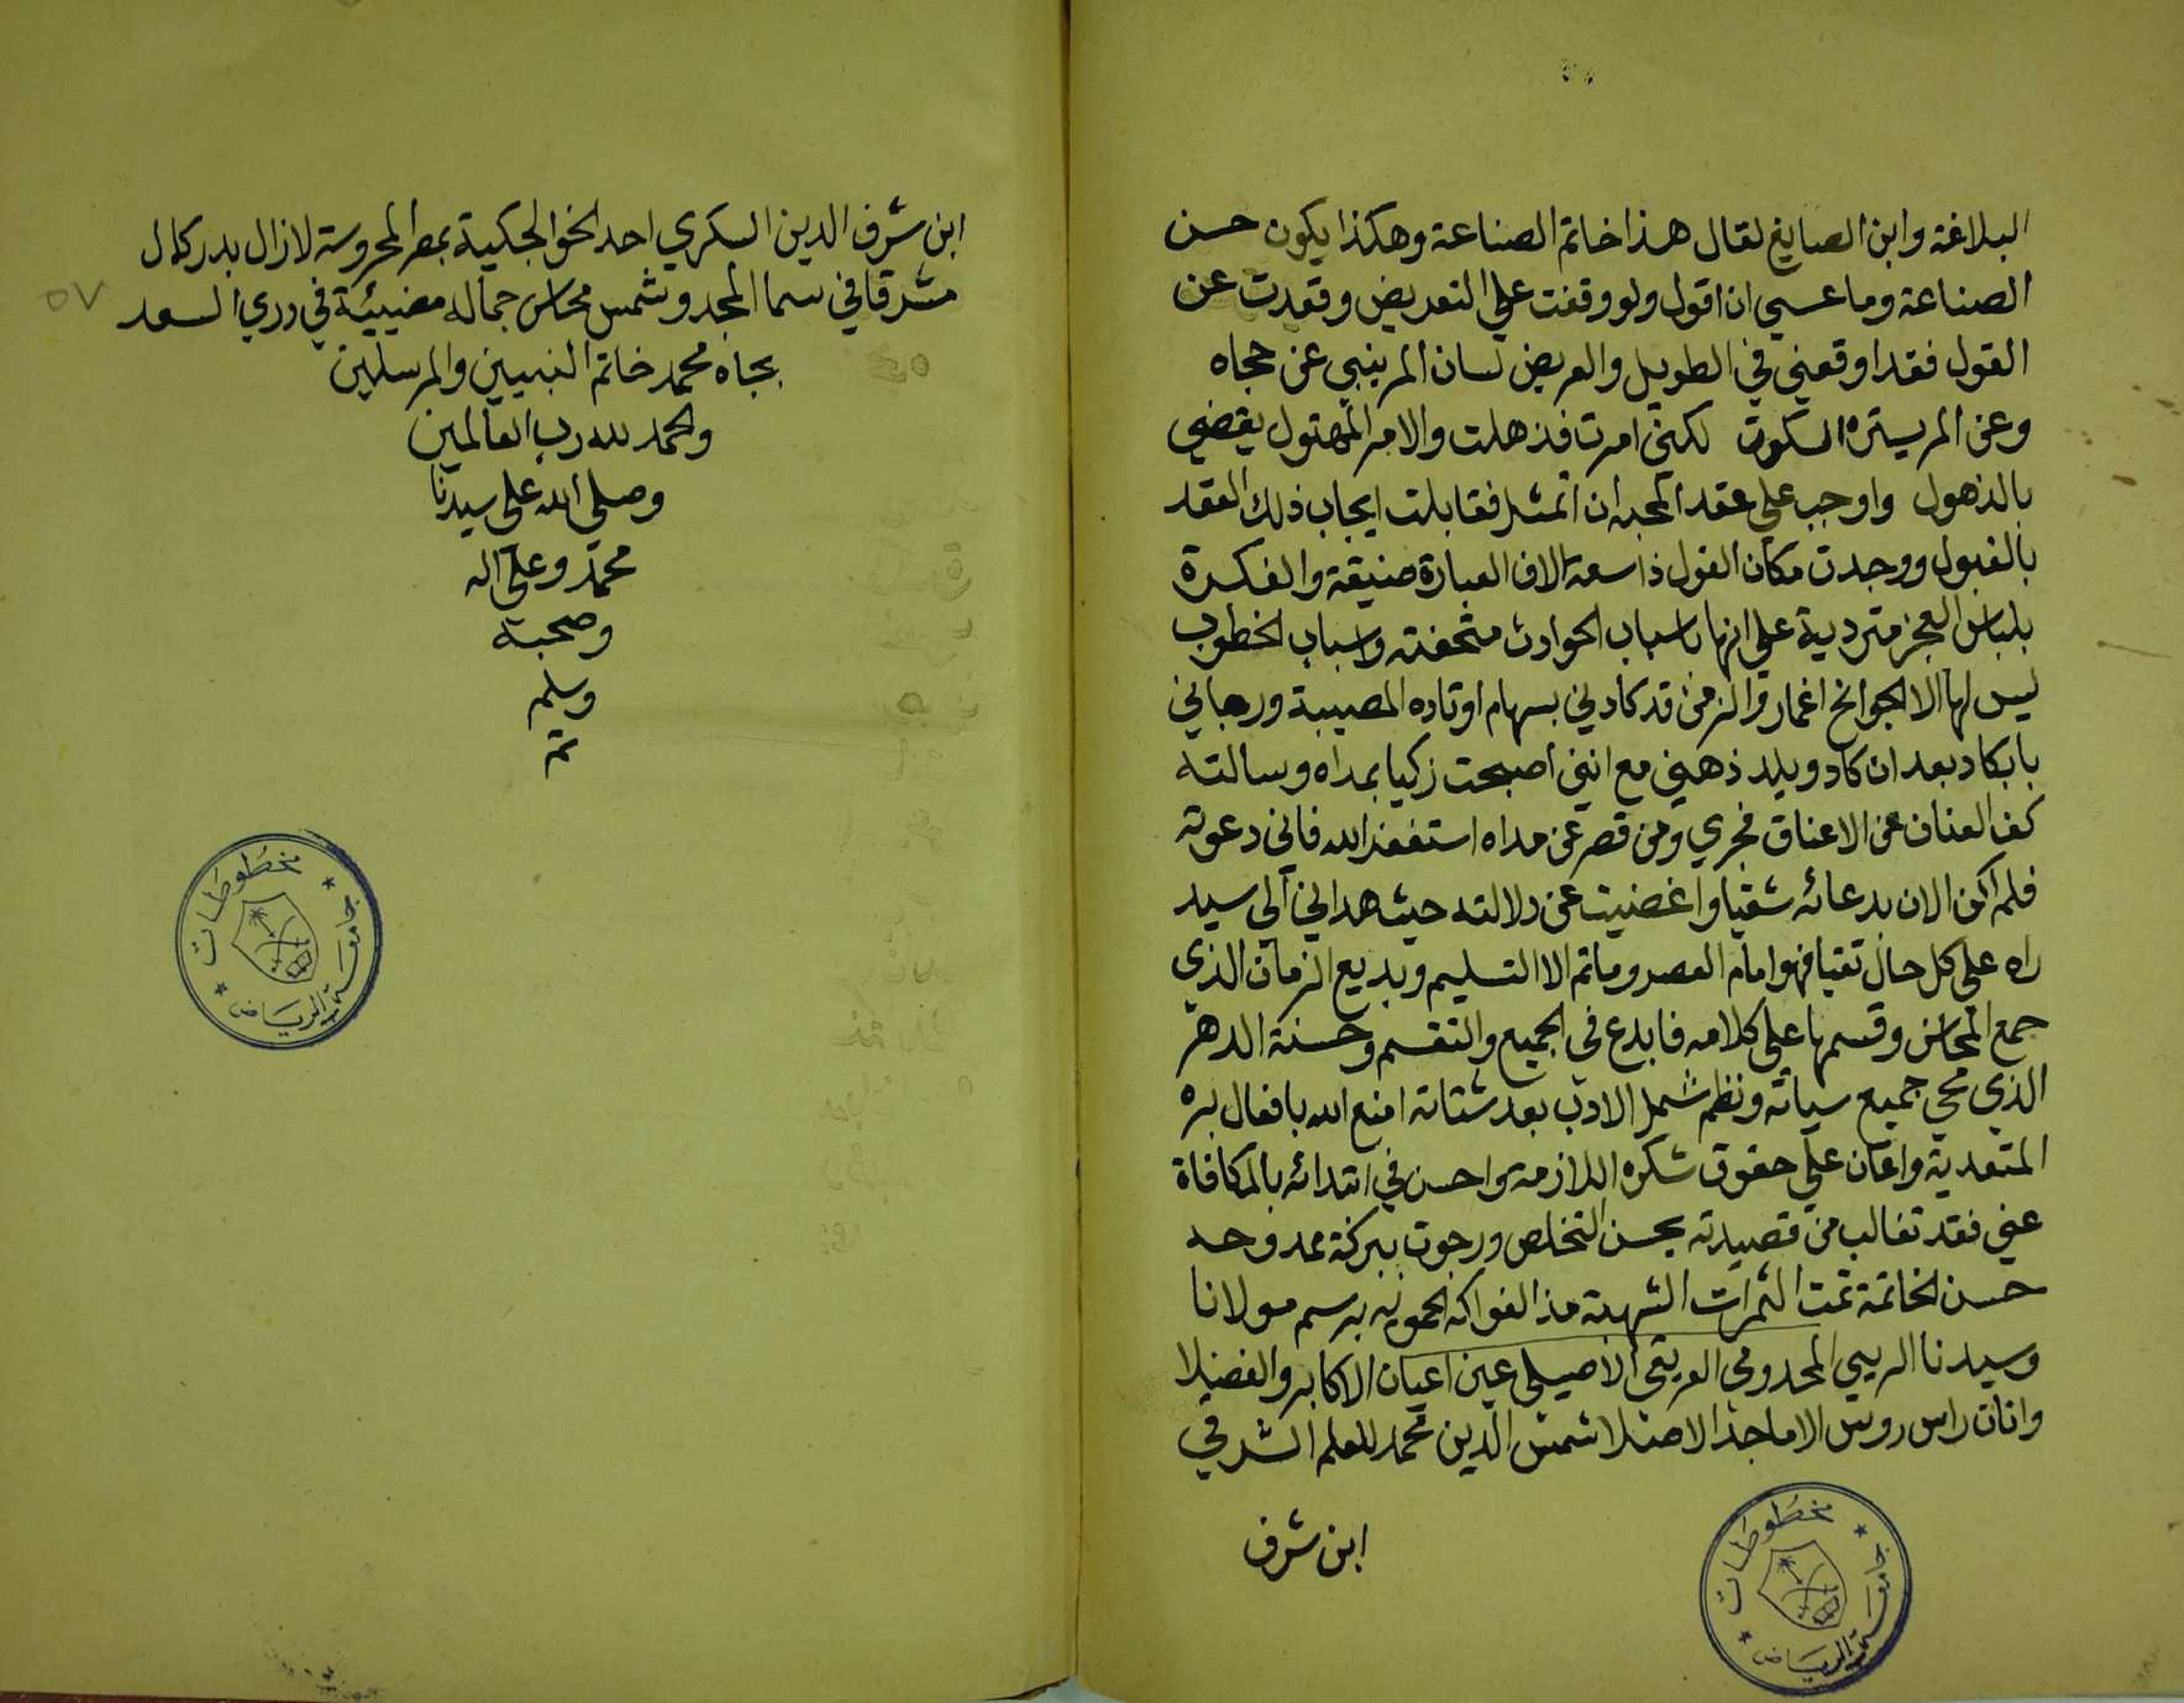 البلاغة وابن الصايغ لقال هذا خاتم الصناعة وهكذا يكون حسن
الصناعة وما عسي ان اقول ولو وقفت علي التعريض وقعدت عن
القول فقد اوقعني في الطويل والعريض لسان المر ينبي عن حجاه
وعن المر يستره السكوت لكني امرت فذهلت والامر المهول يقضي
بالذهول واوجب علي عقد المحبة ان اتمثل فقابلت ايجاب ذلك العقد
بالقبول ووجدت مكان القول ذا سعة الا ان العبارة ضيقة والفكرة
بلباس العجز متردية علي انها باسباب الحوادث متحفة واسباب الخطوب
ليس لها الا الجوانح اغماد والزمن قد كادني بسهام اوتاده المصيبة ورجاني
بابكاد بعد ان كاد ويلد ذهني مع انني اصبحت زكيا بمداه وسالته
كف العنان عن الاعناق فجري ومن قصر عن مداه استغفر الله فاني دعوته
فلم اكن الان بدعائه شقيا واغضيت عن دلالته حيث هداني الي سيد
راه علي كل حال تقيا فهو امام العصر وما تم الا التسليم وبديع الزمان الذي
جمع المحاسن وقسمها علي كلامه فابدع في الجميع والتقسم وحسنة الدهر
الذي محي جميع سياته ونظم شمل الادب بعد شتاته امتع الله بافعال بره
المتعدية واعان علي حقوق شكره اللازمة واحسن في ابتدائه بالمكافاة
عني فقد تغالب من قصيدته بحسن التخلص ورجوت ببركة ممدوحه
حسن الخاتمة تمت الثمرات الشهية من الفواكه الحموية برسم مولانا
وسيدنا الريسي المخدومي العريقي الاصيلي عين اعيان الاكابر والفضلا
وانات راس روس الاماجد الاصلا شمس الدين محمد للعلم الشرفي
ابن شرف
جامعة الرياض
مخطوطات
ابن شرف الدين السكري احد الخوالجكية بمصر المحروسة لازال بدر كمال
مشرقا في سما المجد وشمس محاسن جماله مضيئة في دري السعد
٥٧
بجاه محمد خاتم النبيين والمرسلين
والحمد لله رب العالمين
وصلي الله علي سيدنا
محمد وعلي اله
وصحبة
وسلم
تم
جامعة الرياض
مخطوطات